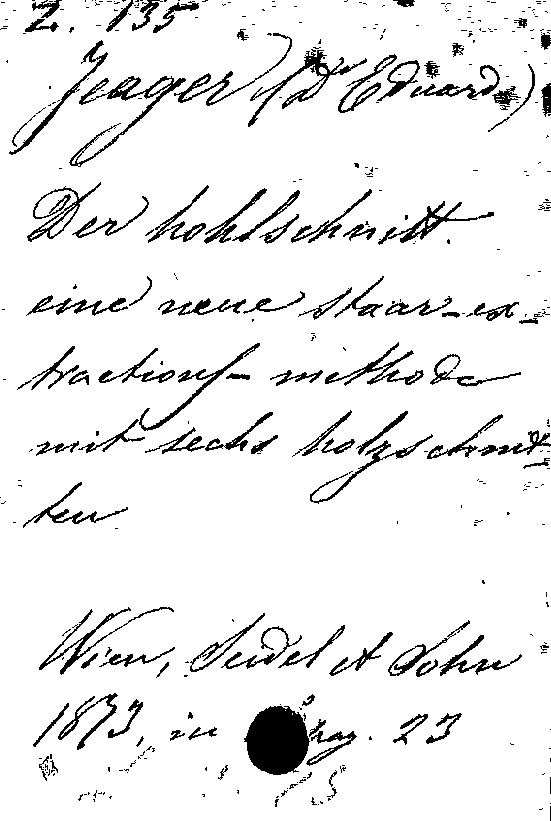 Z. 135
Jeager (Dr Eduard)
Der hohlschnitt.
eine neue staar-ex-
tractions- methode
mit sechs holzschnit-
ten
Wien, Seidel et Sohn
1873, in pag. 23